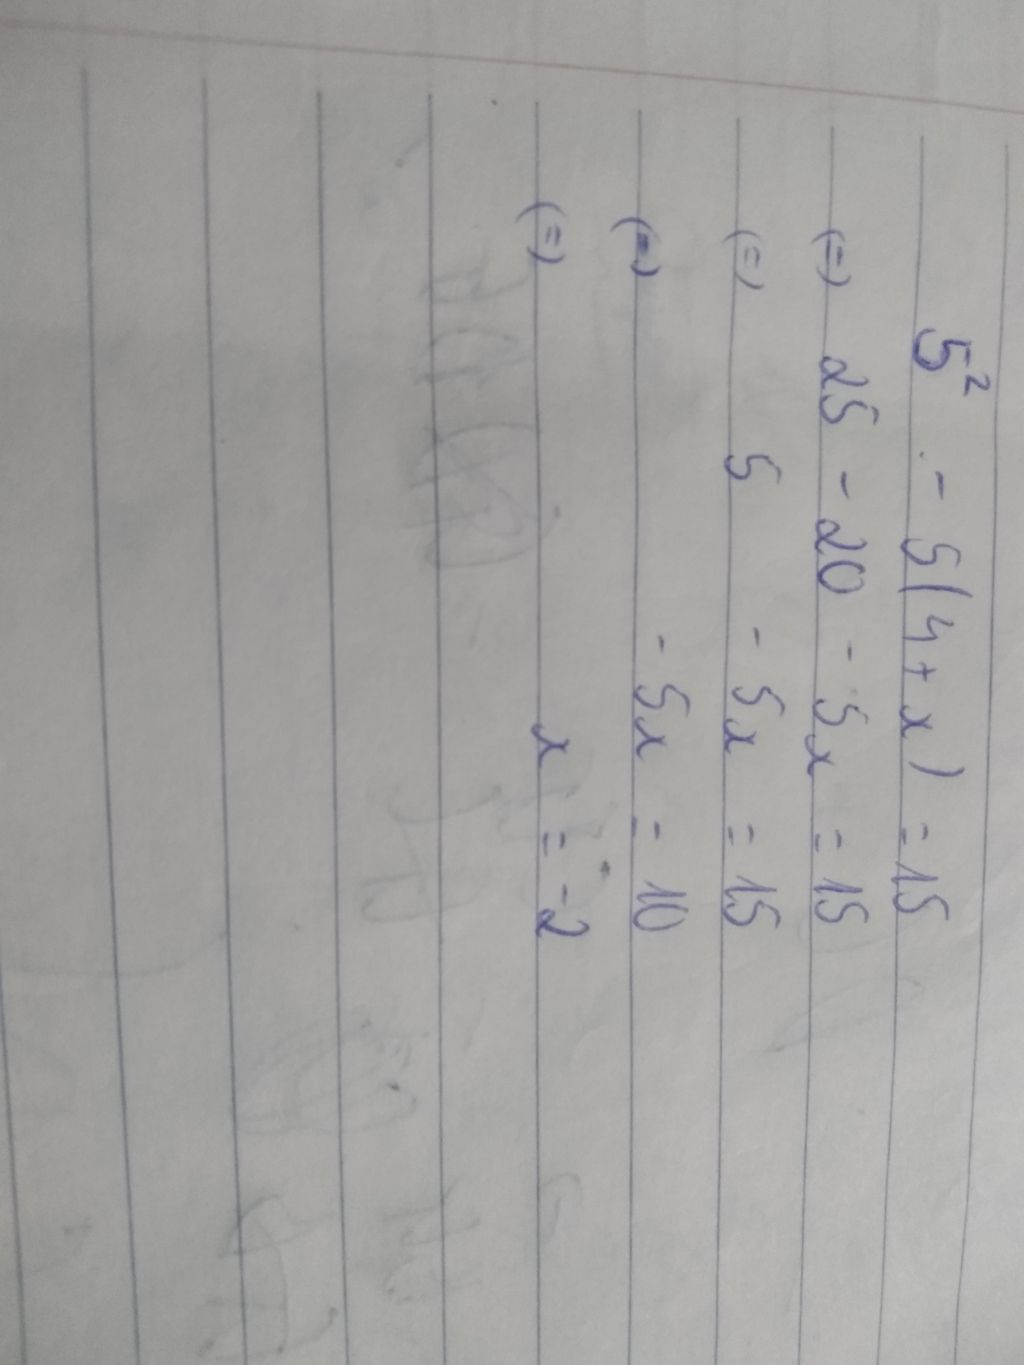 5² - 5(4+x) = 15
(=) 25 - 20 - 5x = 15
(=) 5 - 5x = 15
(=) - 5x = 10
(=) x = -2